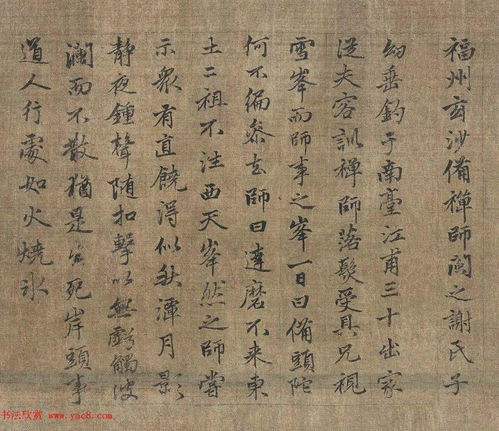 福州玄沙備禪師閩之謝氏子
幼垂釣于南臺江甫三十出家
從夫容訓禪師落髮受具兄視
雪峯而師事之峯一日曰備頭陀
何不徧參去師曰達磨不来東
土二祖不往西天峯然之師嘗
示衆有直饒得似秋潭月影
静夜鍾聲随扣擊以無虧觸波
瀾而不散猶是生死岸頭事
道人行處如火燒氷
书法欣赏 www.yac8.com